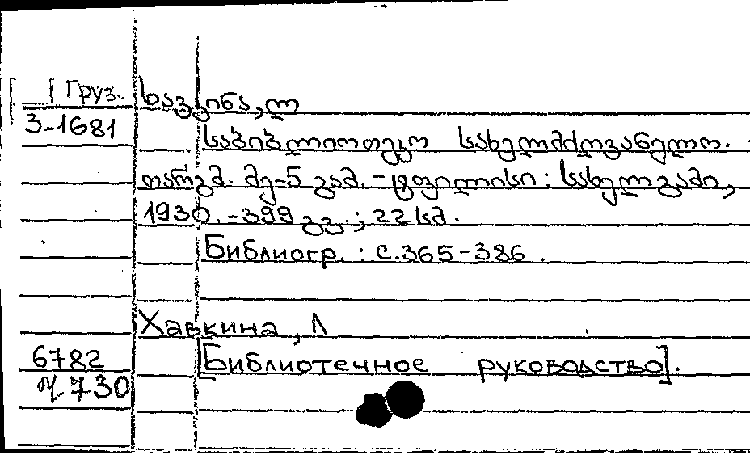 Груз. ხავკინა, ლ
3-1681
საბიბლიოთეკო სახელმძღვანელო.
თარგმ. მე-5 გამ. - ტფილისი : სახელგამი,
1930. - 399 გვ. ; 22 სმ.
Библиогр. : с.365-386.
Хавкина, Л
6782 [Библиотечное руководство].
730